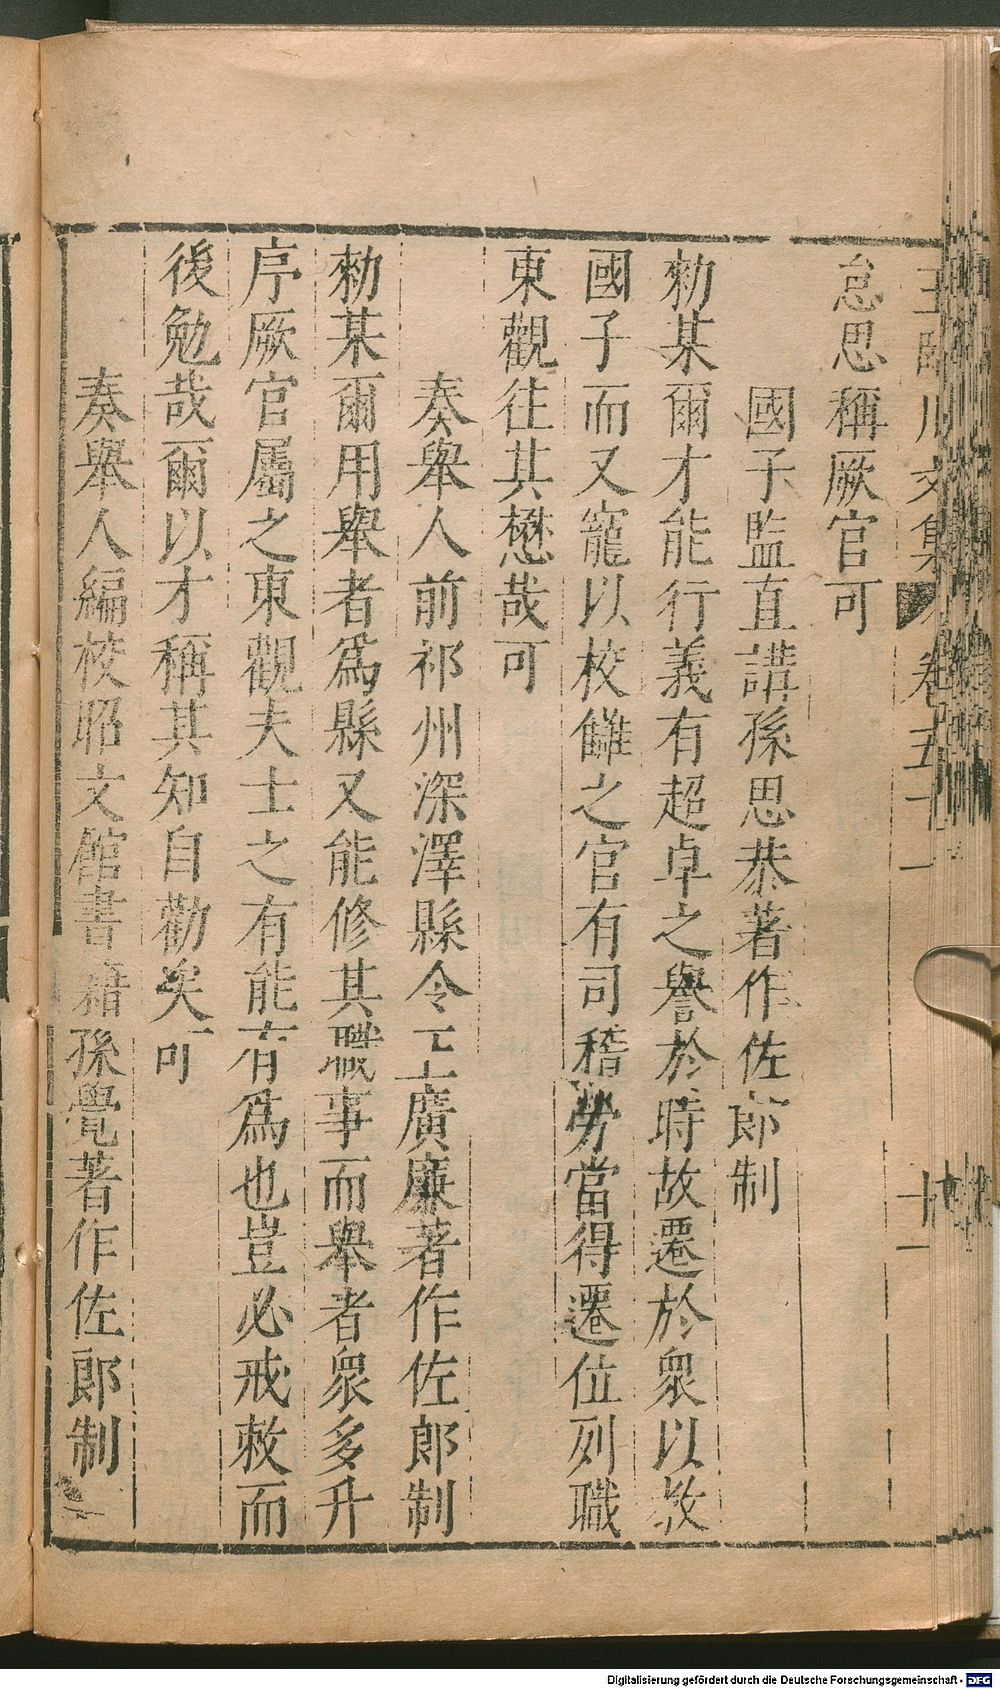 王臨川文集 卷五十一 十一
怠思稱厥官可
國子監直講孫思恭著作佐郎制
勑某爾才能行義有超卓之譽於時故遷於衆以教
國子而又寵以校讎之官有司稽勞當得遷位列職
東觀往其懋哉可
奏舉人前祁州深澤縣令王廣廉著作佐郎制
勑某爾用舉者爲縣又能修其職事而舉者衆多升
序厥官屬之東觀夫士之有能有爲也豈必戒敕而
後勉哉爾以才稱其知自勸矣可
奏舉人編校昭文館書籍孫覺著作佐郎制
Digitalisierung gefördert durch die Deutsche Forschungsgemeinschaft - DFG